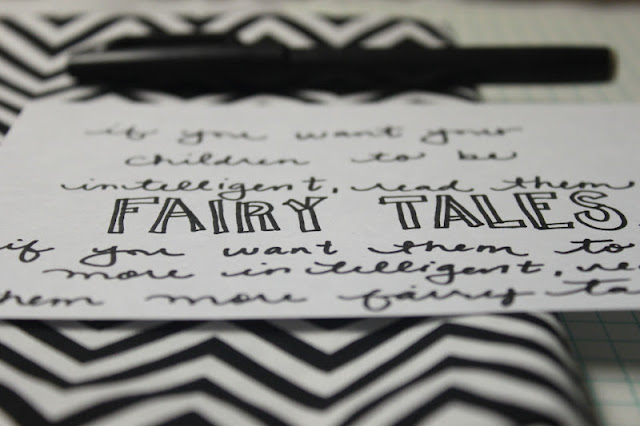 if you want your
children to be
intelligent, read them
FAIRY TALES.
if you want them to
more intelligent, re
hem more fairy ta